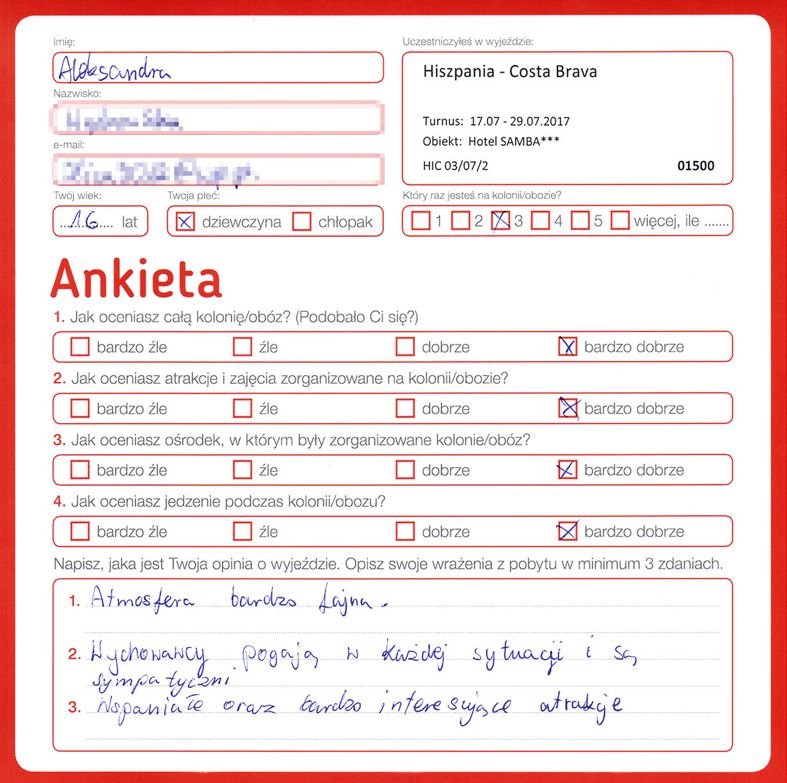 Imię:
Aleksandra
Nazwisko:
e-mail:
Twój wiek:
16 lat
Twoja płeć:
dziewczyna chłopak
Uczestniczyłeś w wyjeździe:
Hiszpania - Costa Brava
Turnus: 17.07 - 29.07.2017
Obiekt: Hotel SAMBA***
HIC 03/07/2 01500
Który raz jesteś na kolonii/obozie?
1 2 3 4 5 więcej, ile .......
Ankieta
1. Jak oceniasz całą kolonię/obóz? (Podobało Ci się?)
bardzo źle źle dobrze bardzo dobrze
2. Jak oceniasz atrakcje i zajęcia zorganizowane na kolonii/obozie?
bardzo źle źle dobrze bardzo dobrze
3. Jak oceniasz ośrodek, w którym były zorganizowane kolonie/obóz?
bardzo źle źle dobrze bardzo dobrze
4. Jak oceniasz jedzenie podczas kolonii/obozu?
bardzo źle źle dobrze bardzo dobrze
Napisz, jaka jest Twoja opinia o wyjeździe. Opisz swoje wrażenia z pobytu w minimum 3 zdaniach.
1. Atmosfera bardzo fajna.
2. Wychowawcy pogają w każdej sytuacji i są
sympatyczni
3. Wspaniałe oraz bardzo interesujące atrakcje